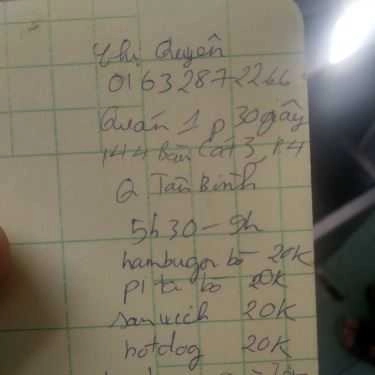 chị Quyên
01632872266
Quán 1 p 30 giây
144 Bàu Cát 3, P4
Q Tân Bình
5h30 - 9h
hambugơ bò 20K
pita bò 20K
sanwich 20K
hotdog 20K